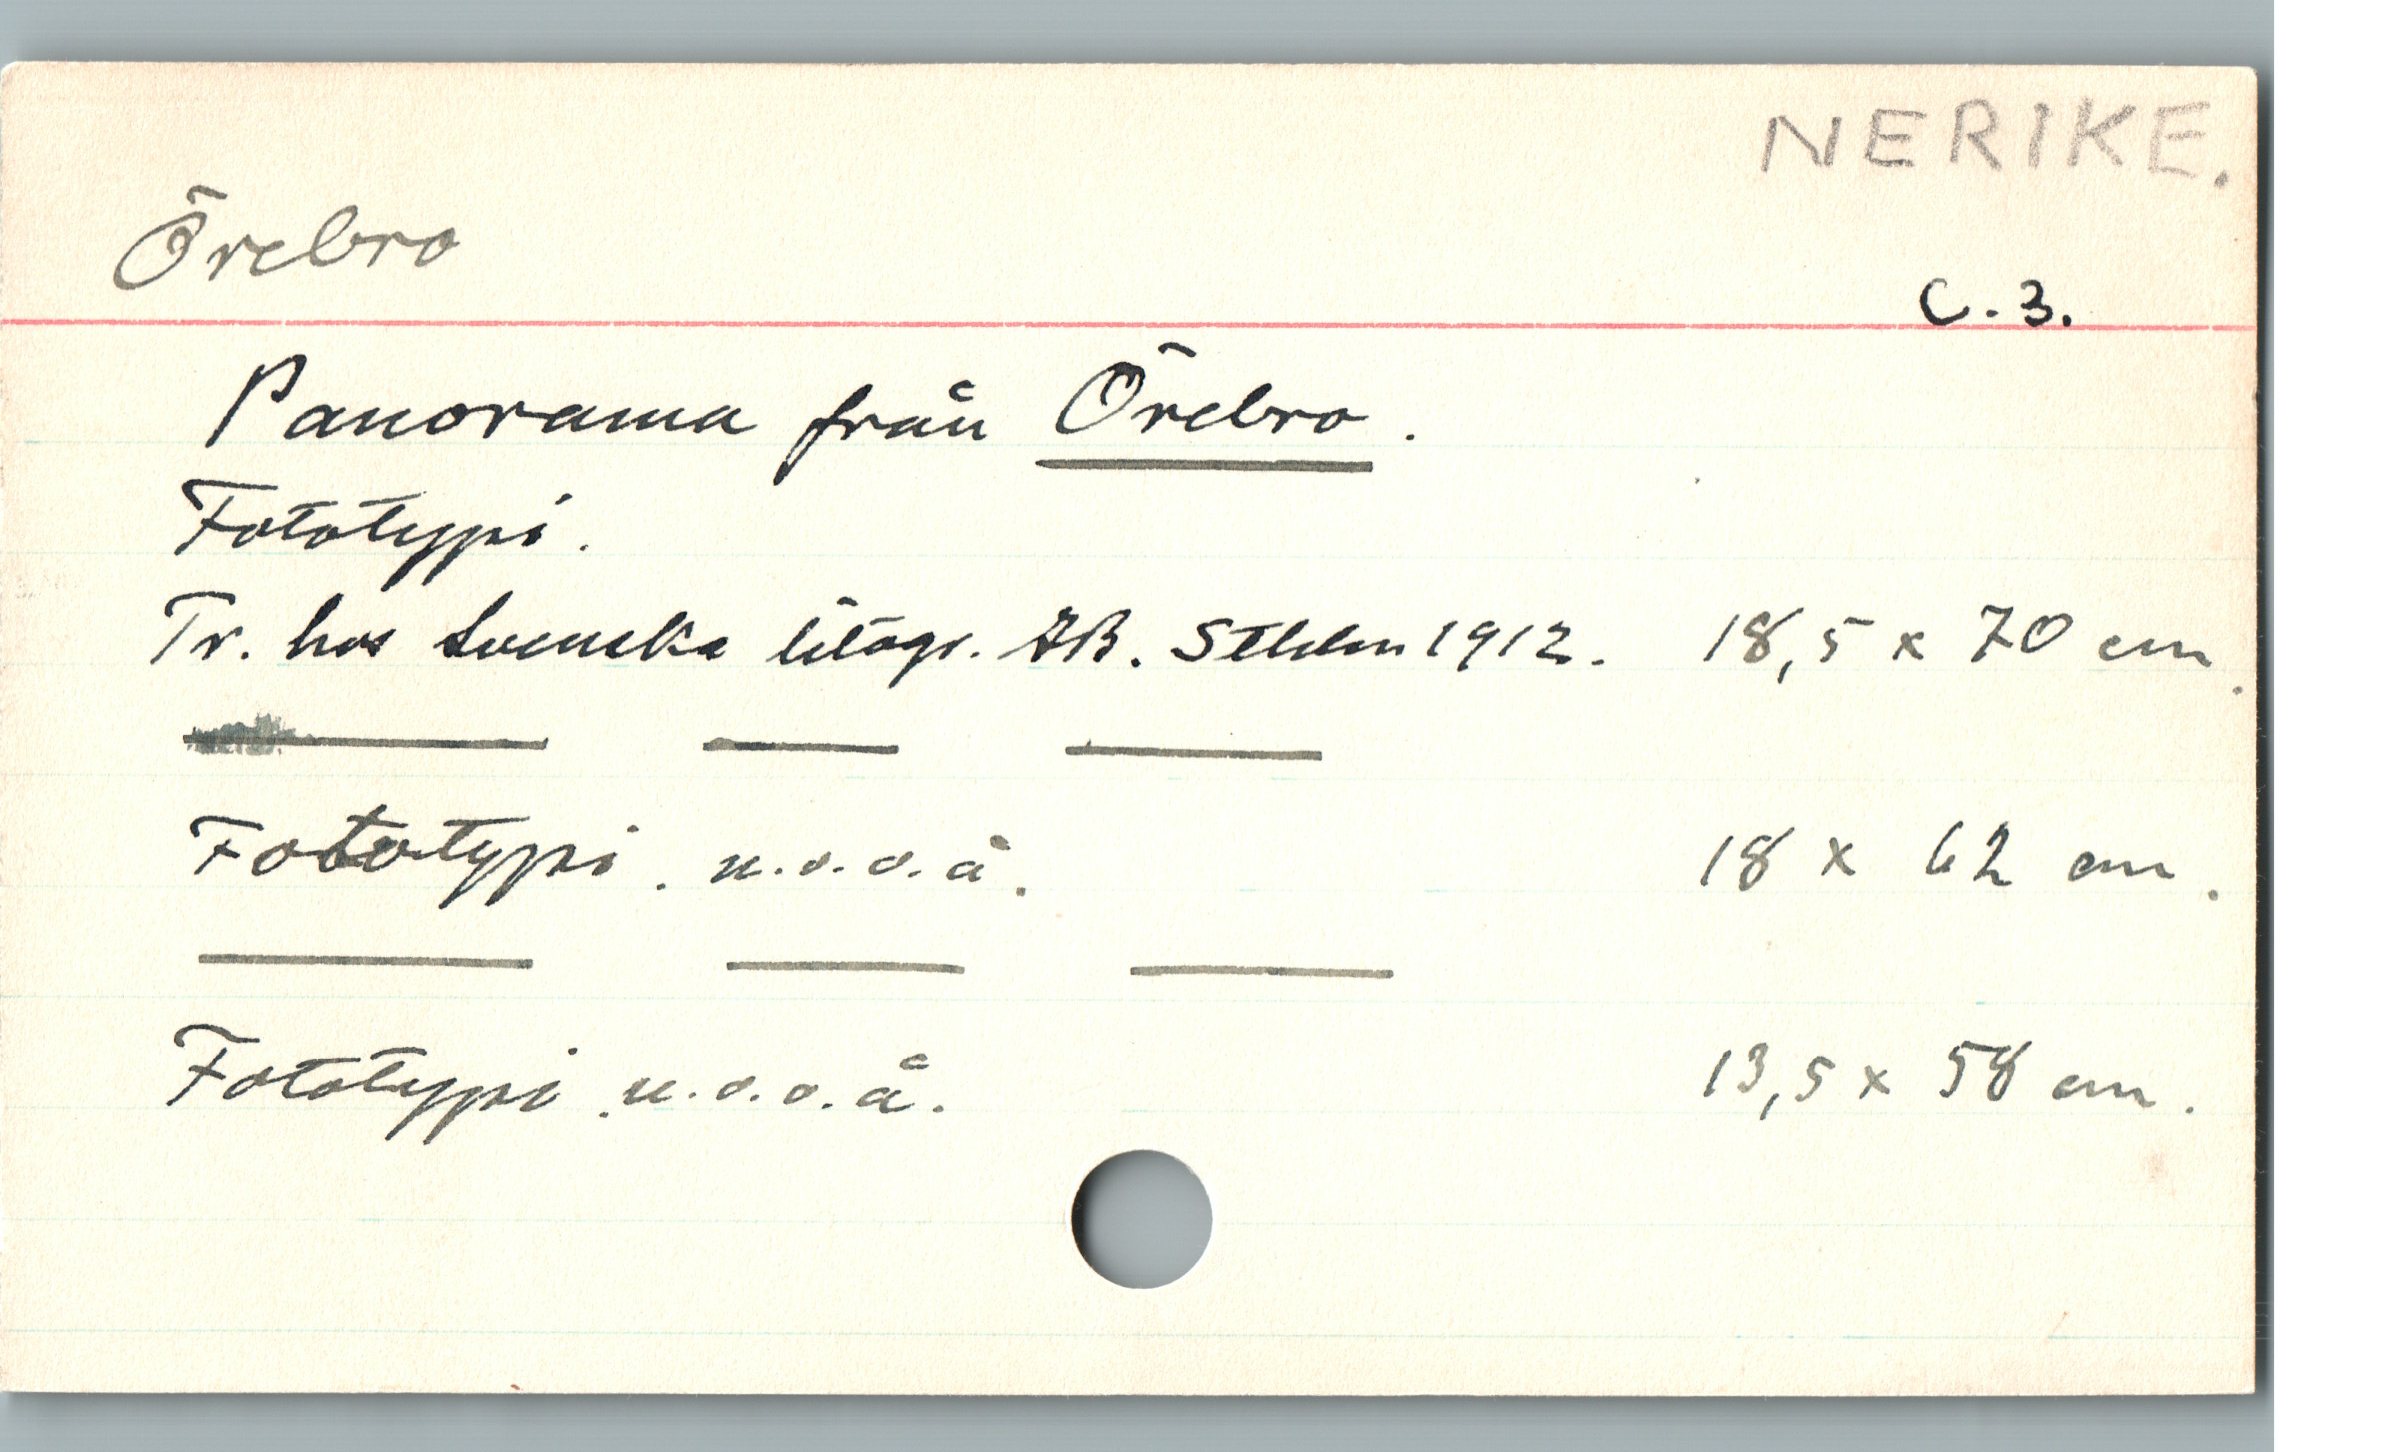 NERIKE.
Örebro
C. 3.
Panorama från Örebro.
Fototypi.
Tr. hos Svenska litogr. AB. Sthlm 1912. 18,5 x 70 cm.
Fototypi. u. o. o. å. 18 x 62 cm.
Fototypi. u. o. o. å. 13,5 x 58 cm.